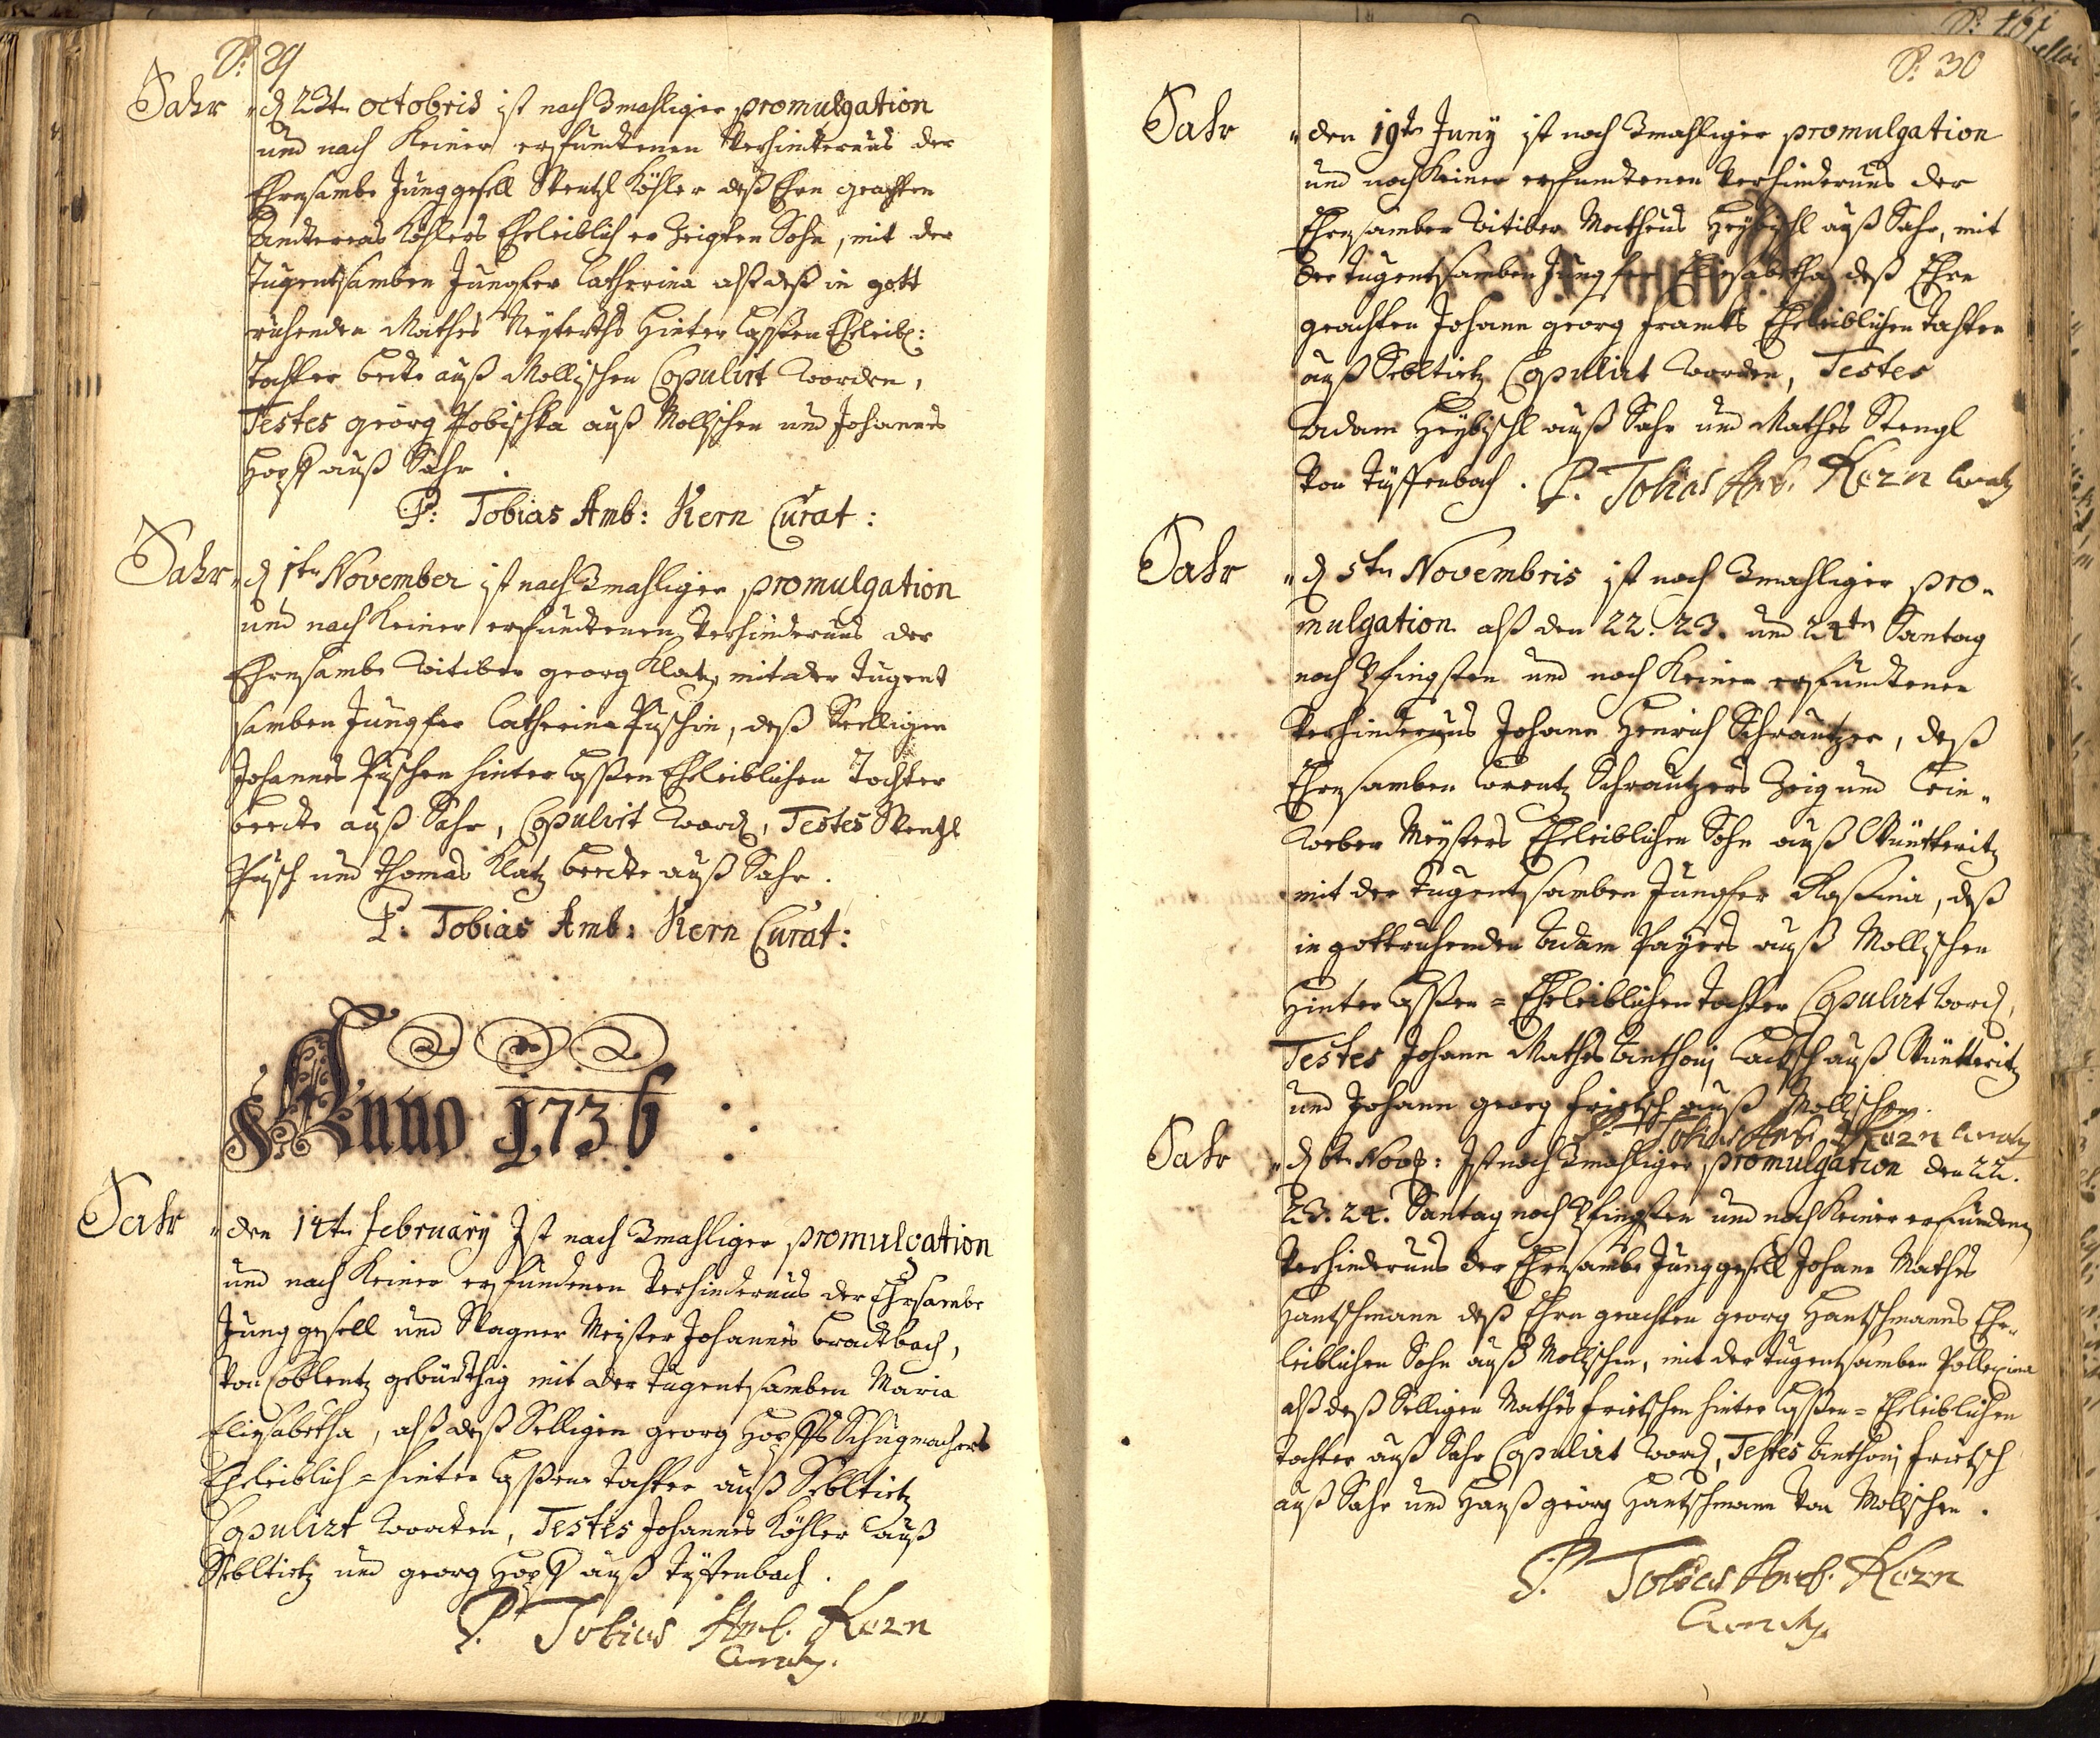 P: 29
Sahr
d 23tn octobris ist nach 3mahliger promulgation
und nach keiner erfundtenen Verhindternus der
Ehrsambe Junggesell Wentzl Köhler deß Ehrn geachten
Andtereas Köhlers Eheleiblich er Zeigten Sohn, mit der
Tugentsamben Jungfer Catherina alß deß in gott
ruhenden Mathes Neyferths hinter laßten Eheleibl:
Tochter beede auß Mollischen Copulirt worden,
Testes georg Pobischka auß Mollischen und Johannes
Hopff auß Sahr.
P: Tobias Amb: Kern Curat:
Sahr
d 1tn November ist nach 3mahliger promulgation
und nach keiner erfundtenen Verhindernus der
Ehrsambe Witiber georg Klatz, mit der Tugent
samben Jungfer Catherina Puschin, deß Seelligen
Johannes Puschen hinter laßten Eheleiblichen Tochter
beede auß Sahr, Copulirt word, Testes Wentzl
Pusch und Thomas Klatz beede auß Sahr.
P: Tobias Amb: Kern Curat:
Anno 1736
Sahr
den 14tn february Ist nach 3mahliger promulgation
und nach keiner erfundenen Verhindernus der Ehrsambe
Junggesell und Wagner Meister Johannes bradtbach,
Von Coblentz gebürthig mit der Tugentsamben Maria
Eliesabetha, alß deß Selligen georg Hopffs Schugmachers
Eheleiblich = hinter laßene Tochter auß
Copulirt worden, Testes Johannes Köhler auß
und georg Hopff auß Tyffenbach.
P. Tobias Amb. Kern
Curatg.
P: 30
Sahr
den 19tn Juny ist nach 3mahliger promulgation
und nach keiner erfundtenen Verhindernus der
Ehrsamber Witiber Matheus Heybischl auß Sahr, mit
der Tugentsamben Jungfer Eliesabetha deß Ehrn
geachten Johann georg Eheleiblichen Tochter
auß Copulirt worden, Testes
Adam Heybischl auß Sahr und Mathes Stengl
Von Tyffenbach. P. Tobias Amb. Kern Curatg
Sahr
d 5tn Novembris ist nach 3mahliger pro-
mulgation alß den 22. 23. und 24tn Santag
nach Pfingsten und nach keiner erfundtenen
Verhindernus Johann Henrich Schrautzer, deß
Ehrsamben Lorentz Schrautzers Zeig und Lein-
weber Meysters Eheleiblichen Sohn auß
mit der Tugentsamben Jungfer Rosina, deß
in gott ruhenden Adam Payers auß Mollischen
Hinter laßten = Eheleiblichen Tochter Copulirt word,
Testes Johann Mathes Anthoni auß
und Johann georg Frietsch auß Mollischen.
P. Tobias Amb. Kern Curatg
Sahr
d 6tn Novb: Ist nach 3mahliger promulgation den 22.
23. 24. Santag nach Pfingsten und nach keiner erfunden
Verhindernus der Ehrsambe Junggesell Johann Mathes
Hantschmann deß Ehrn geachten georg Hantschmanns Ehe-
leiblichen Sohn auß Mollischen, mit der Tugentsamben Pollexina
alß deß Selligen Mathes Frietschen hinter laßten = Eheleiblichen
Tochter auß Sahr Copulirt word, Testes Anthoni Frietsch
auß Sahr und Hanß georg Hantschmann Von Mollischen.
P. Tobias Amb. Kern
Curatg.